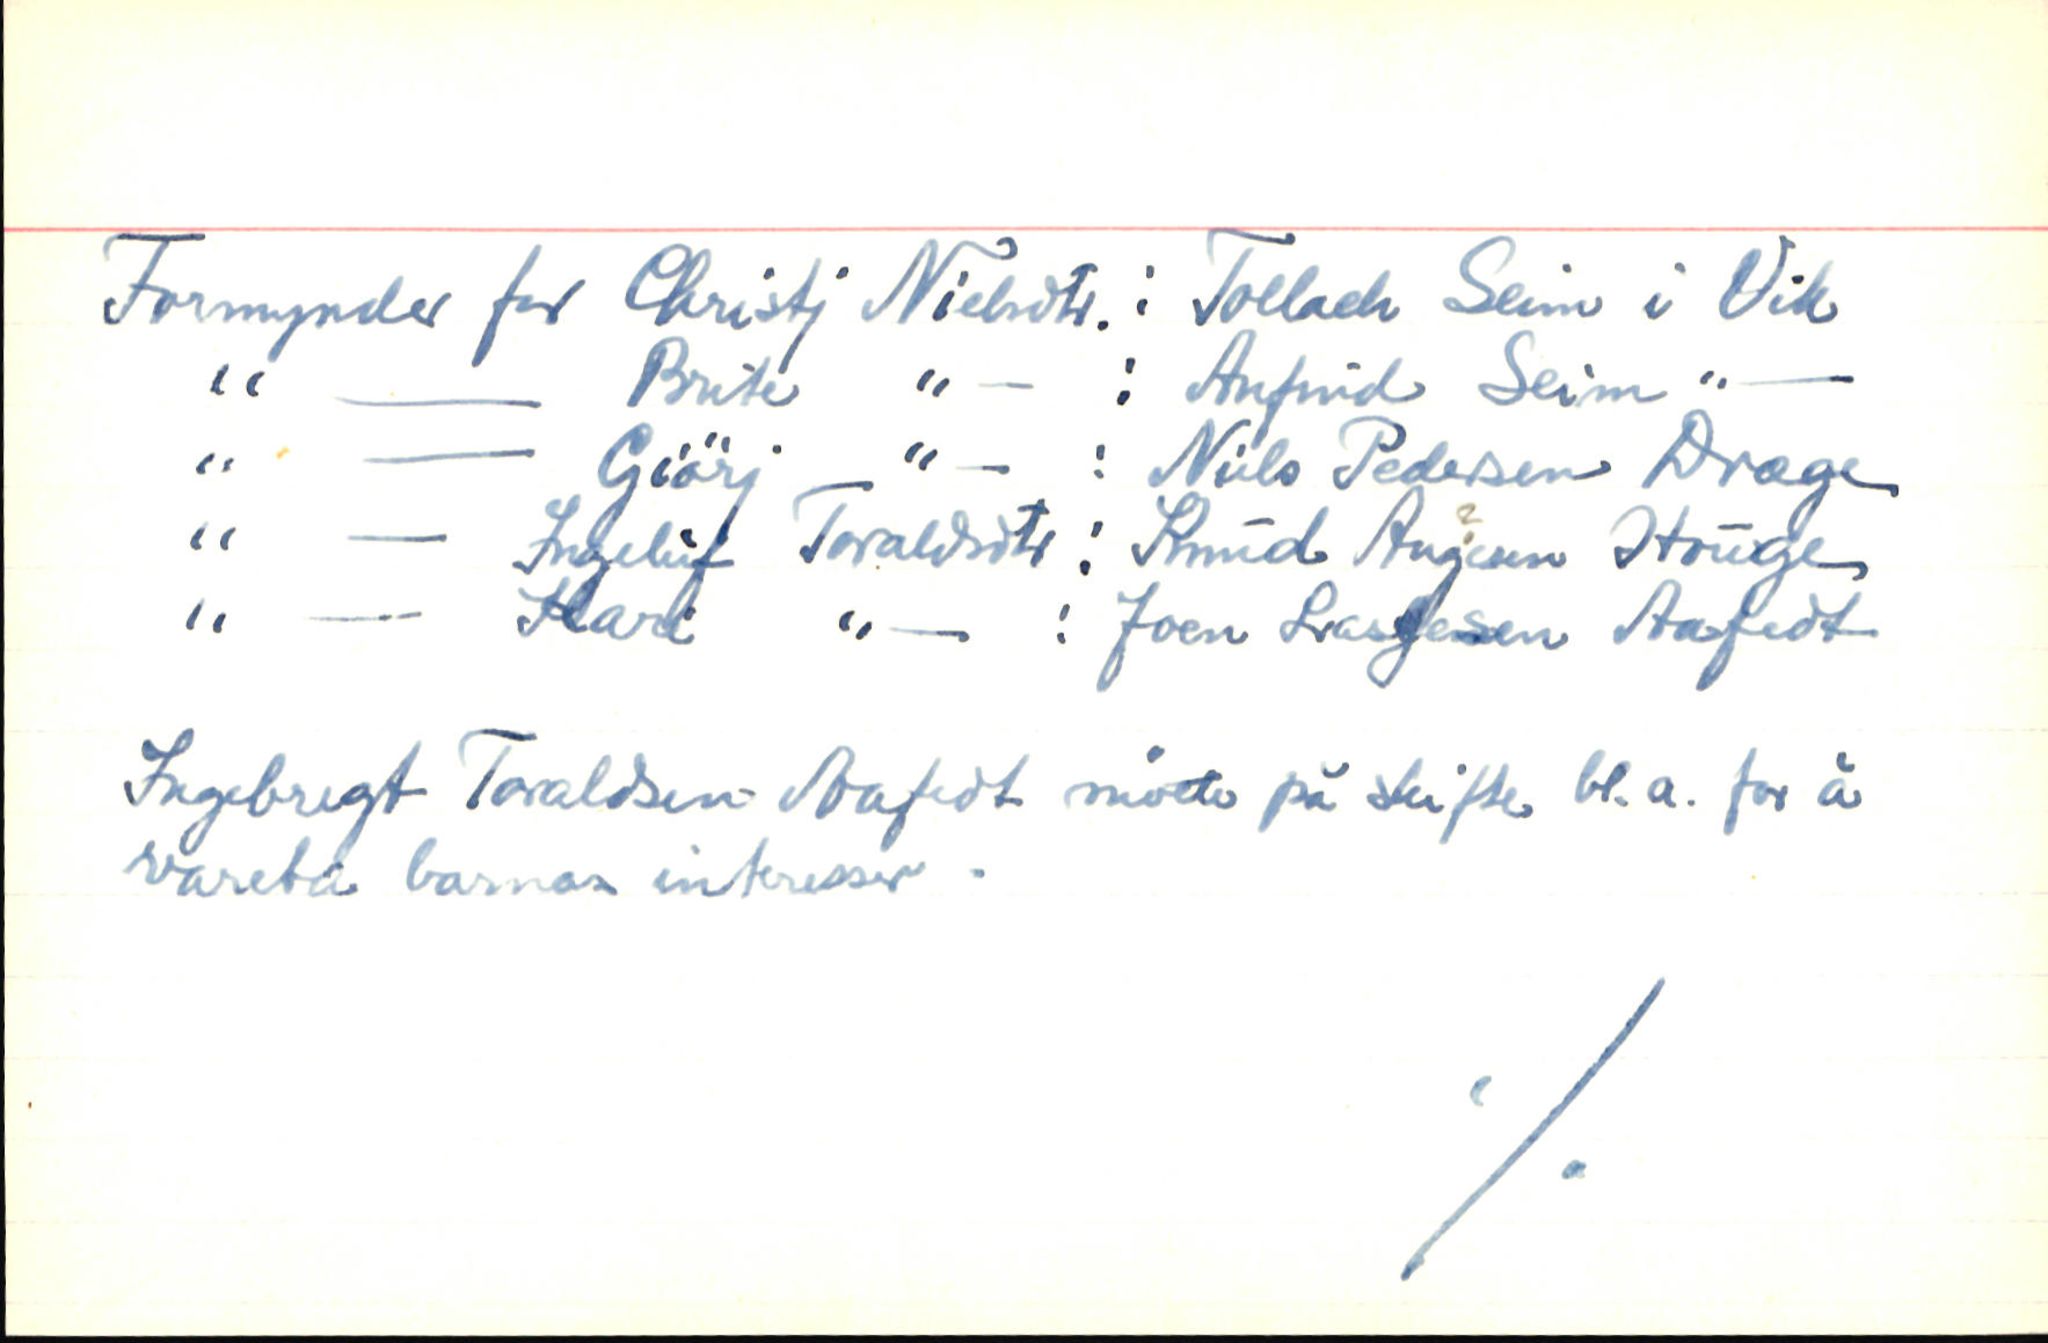 Formynder for Christj Nielsdtr. : Tollach Seim i Vik
" — Brite " — : Anfind Seim " —
" — Giörj " — : Niels Pedersen Drage
" — Ingelüf Toraldsdtr : Knūd Haūge
" — Kari " — : Joen Aafedt
Ingebregt Toraldsen Aafedt möte på skifte bl. a. for å
vareta barnas interesser.
·/.